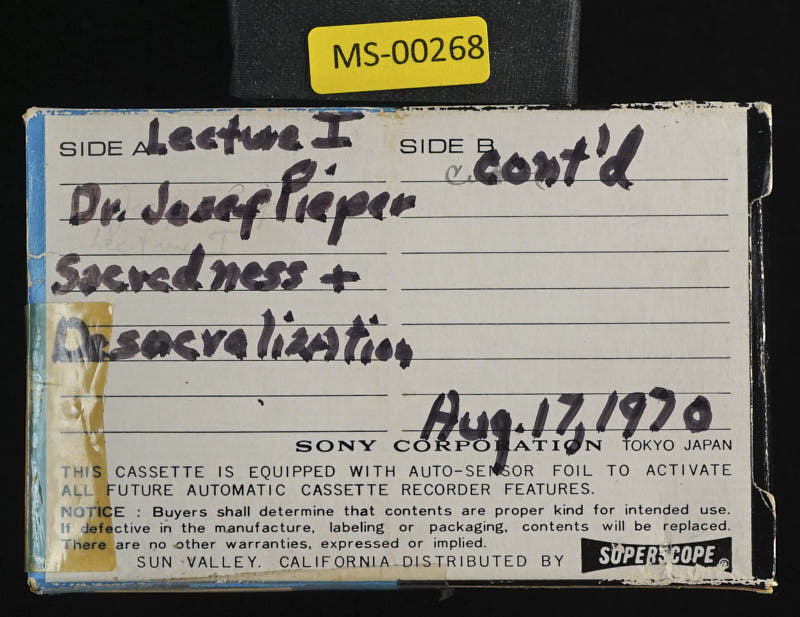 MS-00268
SIDE A Lecture I
Dr. Josef Pieper
Sacredness +
Desacralization
SIDE B cont'd
Aug. 17, 1970
SONY CORPORATION TOKYO JAPAN
THIS CASSETTE IS EQUIPPED WITH AUTO-SENSOR FOIL TO ACTIVATE
ALL FUTURE AUTOMATIC CASSETTE RECORDER FEATURES.
NOTICE : Buyers shall determine that contents are proper kind for intended use.
If defective in the manufacture, labeling or packaging, contents will be replaced.
There are no other warranties, expressed or implied.
SUN VALLEY. CALIFORNIA DISTRIBUTED BY SUPERSCOPE®